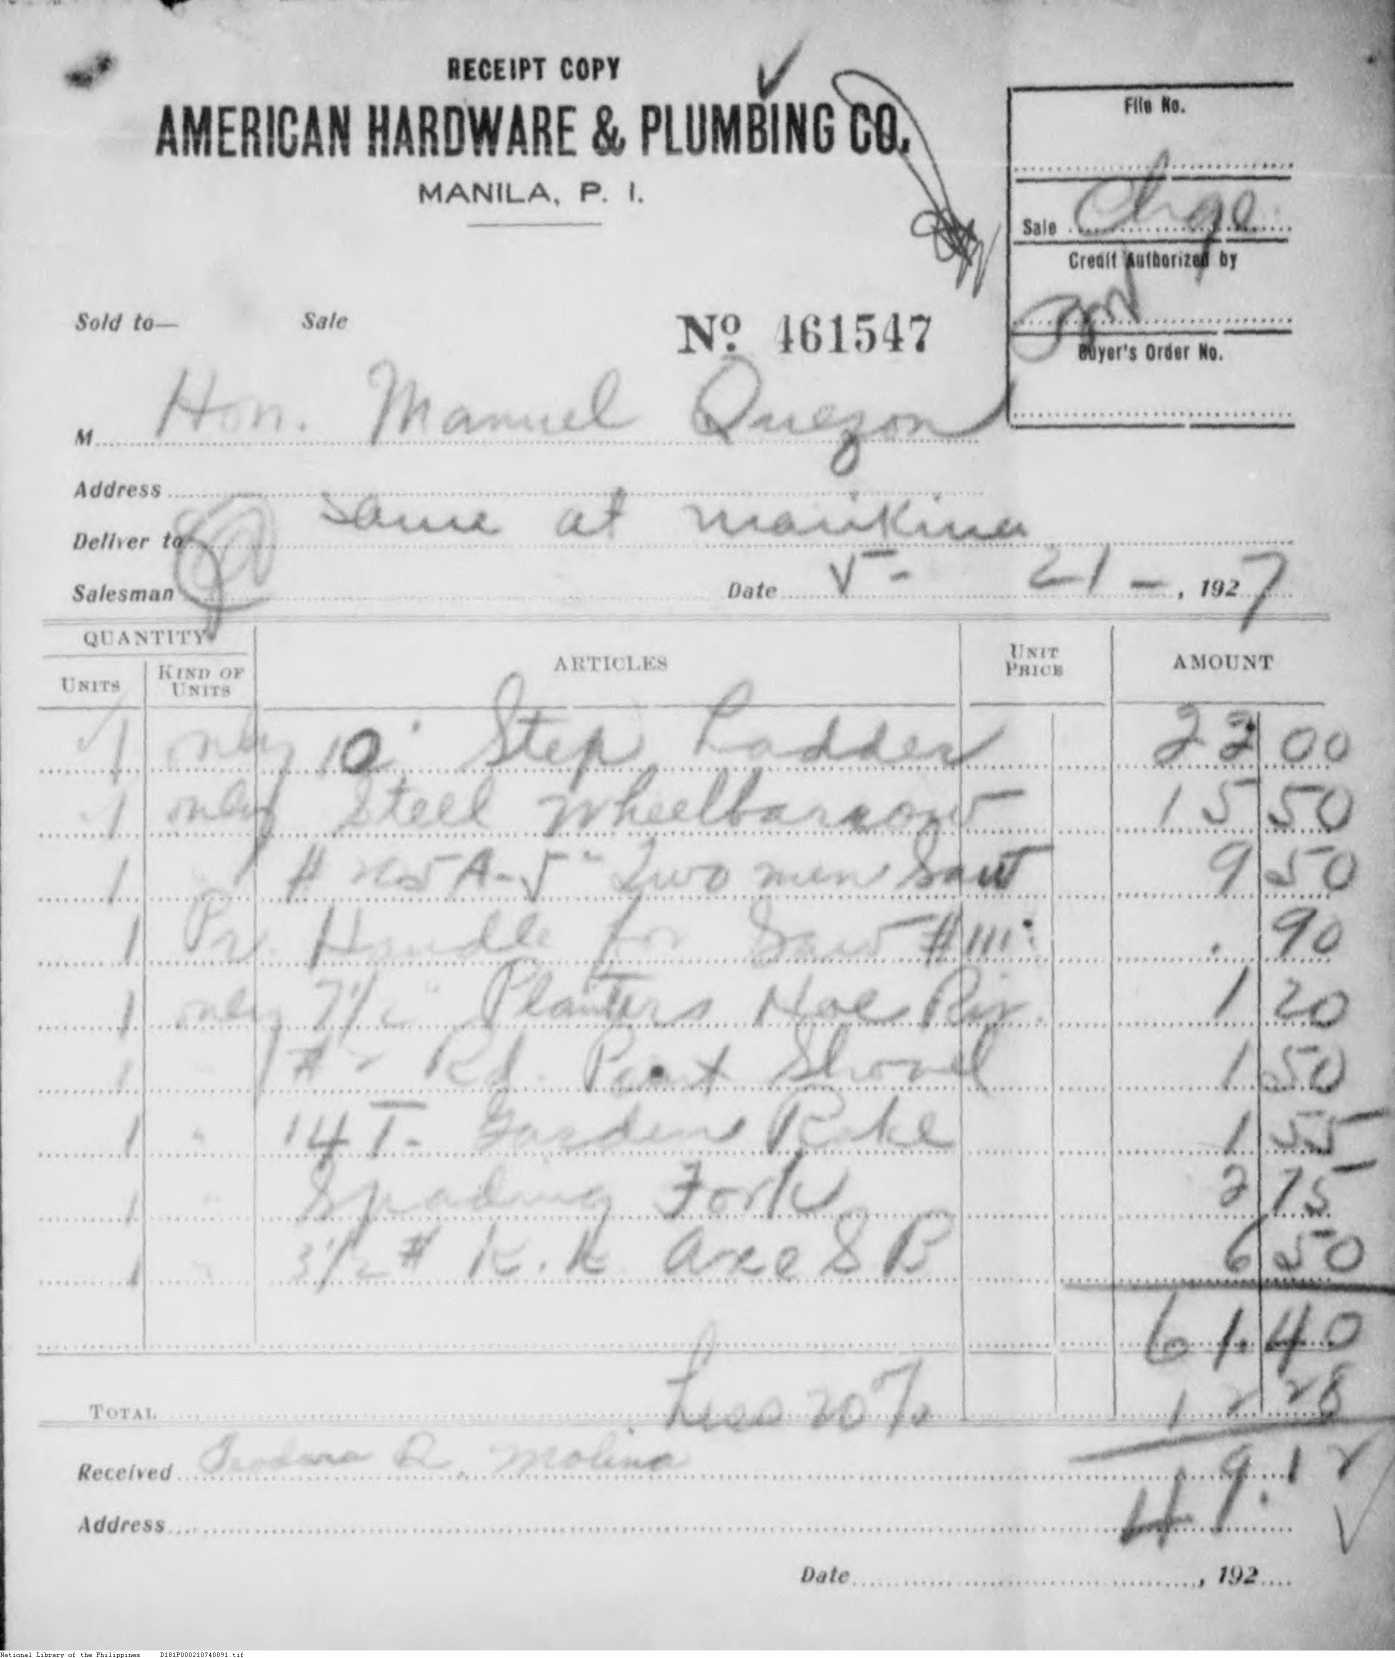 RECEIPT COPY
AMERICAN HARDWARE & PLUMBING CO.
MANILA, P. I.
File No.
Sale Chge
Credit Authorized by
Buyer's Order No.
Sold to— Sale No. 461547
M Hon. Manuel Quezon
Address
Deliver to same at Marikina
Salesman Date 5 - 21 - , 1927
QUANTITY ARTICLES UNIT PRICE AMOUNT
UNITS KIND OF UNITS
1 only 10' Step Ladder 22 00
1 only Steel Wheelbarrow 15 50
1 " # A-5" Two men Saw 9 50
1 Pr. Handle for Saw #111 . 90
1 only 7 1/2" Planters Hoe 1 20
1 " #2 Rd. Point Shovel 1 50
1 " 14 T- Garden Rake 1 55
1 " Spading Fork 2 75
1 " 3 1/2 # K.K. Axe S B 6 50
61.40
TOTAL Less 20% 12 28
Received Teodora R. Molina 49.12
Address
Date , 192
National Library of the Philippines D181P000210740891.tif